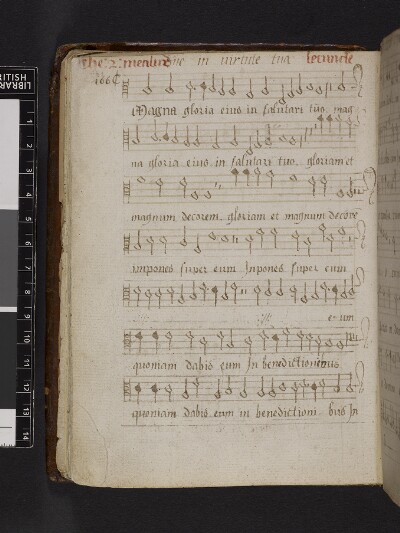 The: 2: meane Dñe in virtute tua Secunde
166
Magna gloria eius in salutari tuo, mag
na gloria eius in salutari tuo, gloriam et
magnum decorem, gloriam et magnum decore
impones super eum Inpones super eum
:||: :||: e- um
quoniam dabis eum In benedictionibus
quoniam dabis eum in benedictioni- bus In